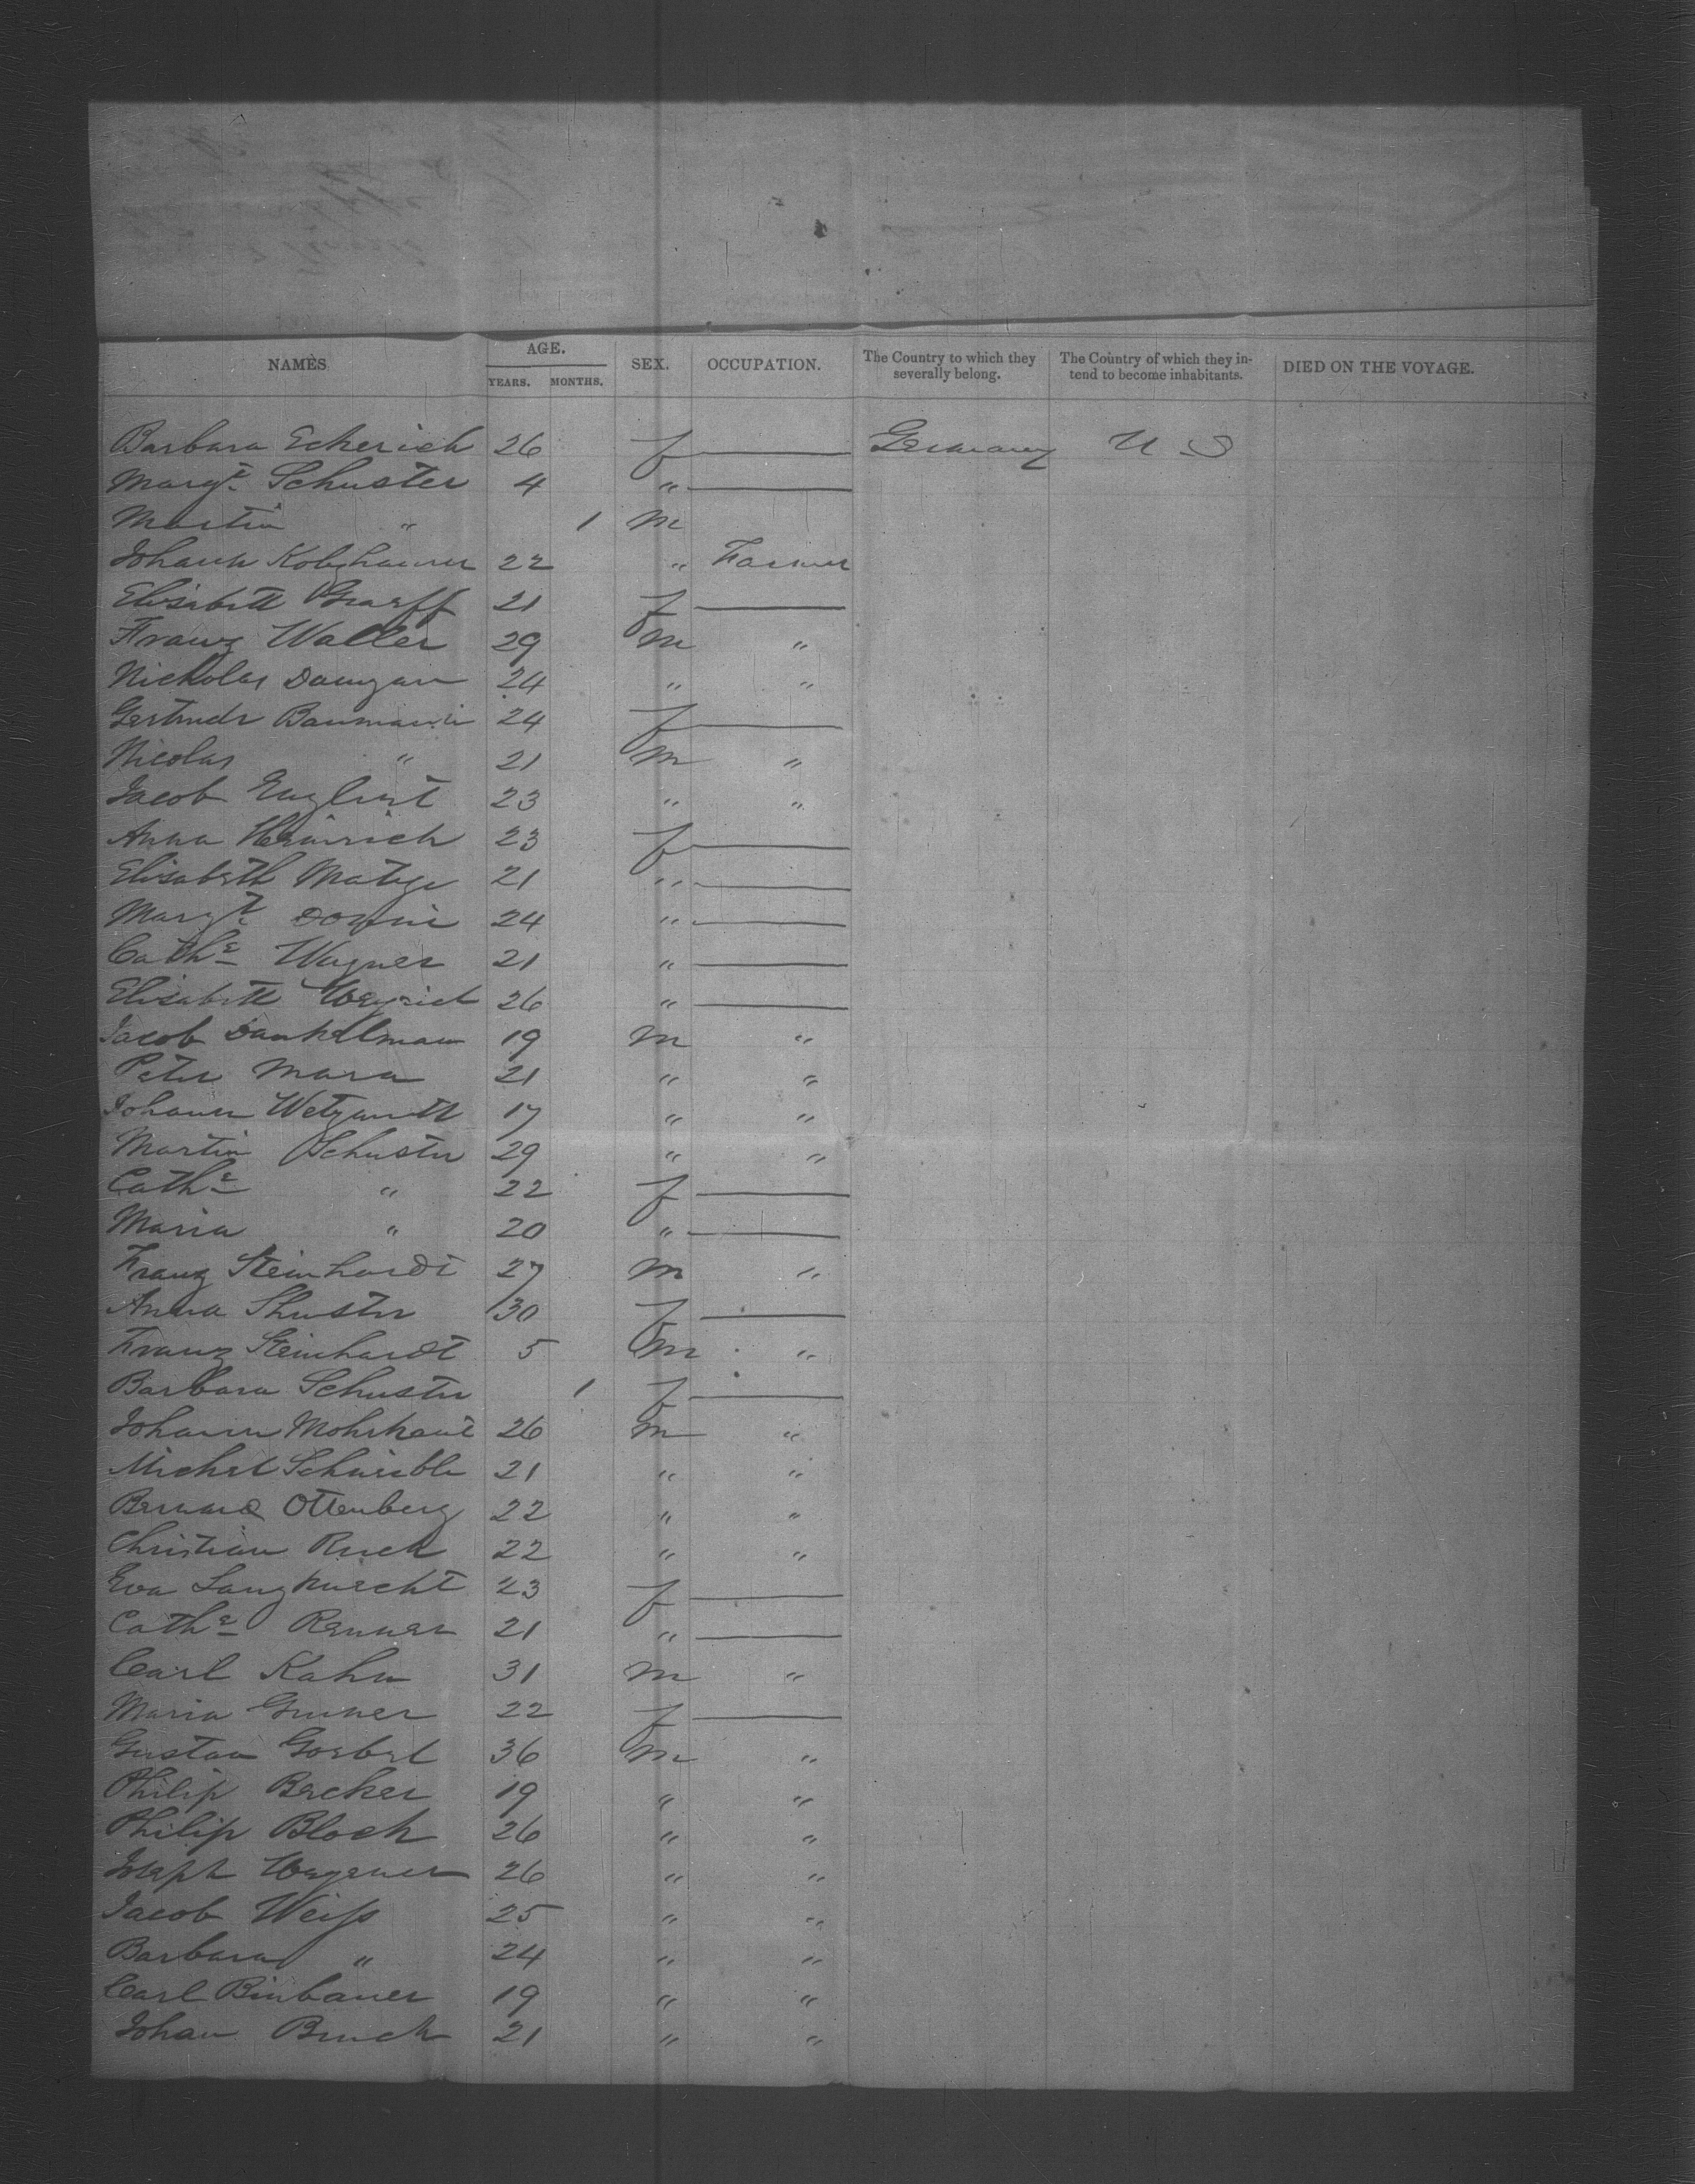 NAMES AGE. YEARS. MONTHS. SEX. OCCUPATION. The Country to which they severally belong. The Country of which they intend to become inhabitants. DIED ON THE VOYAGE.
Barbara Eckerich 26 f — Germany U S
Margt. Schuster 4 " —
Martin " 1 m
Johann 22 " Farmer
Elisabeth Graeff 21 f —
Franz Waller 29 m "
Nicholas 24 " "
Gertrude Baumann 24 f —
Nicolas " 21 m "
Jacob Englert 23 " "
Anna Heinrich 23 f —
Elisabeth 21 " —
Margt. 24 " —
Cathe Wagner 21 " —
Elisabeth Weyrich 26 " —
Jacob Dankelman 19 m "
Peter Mara 21 " "
Johann 17 " "
Martin Schuster 29 " "
Cathe " 22 f —
Maria " 20 " —
Franz Steinhardt 27 m "
Anna Shuster 30 f —
Franz Steinhardt 5 m "
Barbara Schuster 1 f —
Johann 26 m "
Michel 21 " "
Bernard Ottenberg 22 " "
Christian Ruck 22 " "
Eva Langknecht 23 f —
Cathe Renner 21 " —
Carl Kahn 31 m "
Maria 22 f —
Gustav Goebel 36 m "
Philip Becker 19 " "
Philip Bloch 26 " "
Joseph Wagener 26 " "
Jacob Weiss 25 " "
Barbara " 24 " "
Carl Binbauer 19 " "
Johan Bruch 21 " "